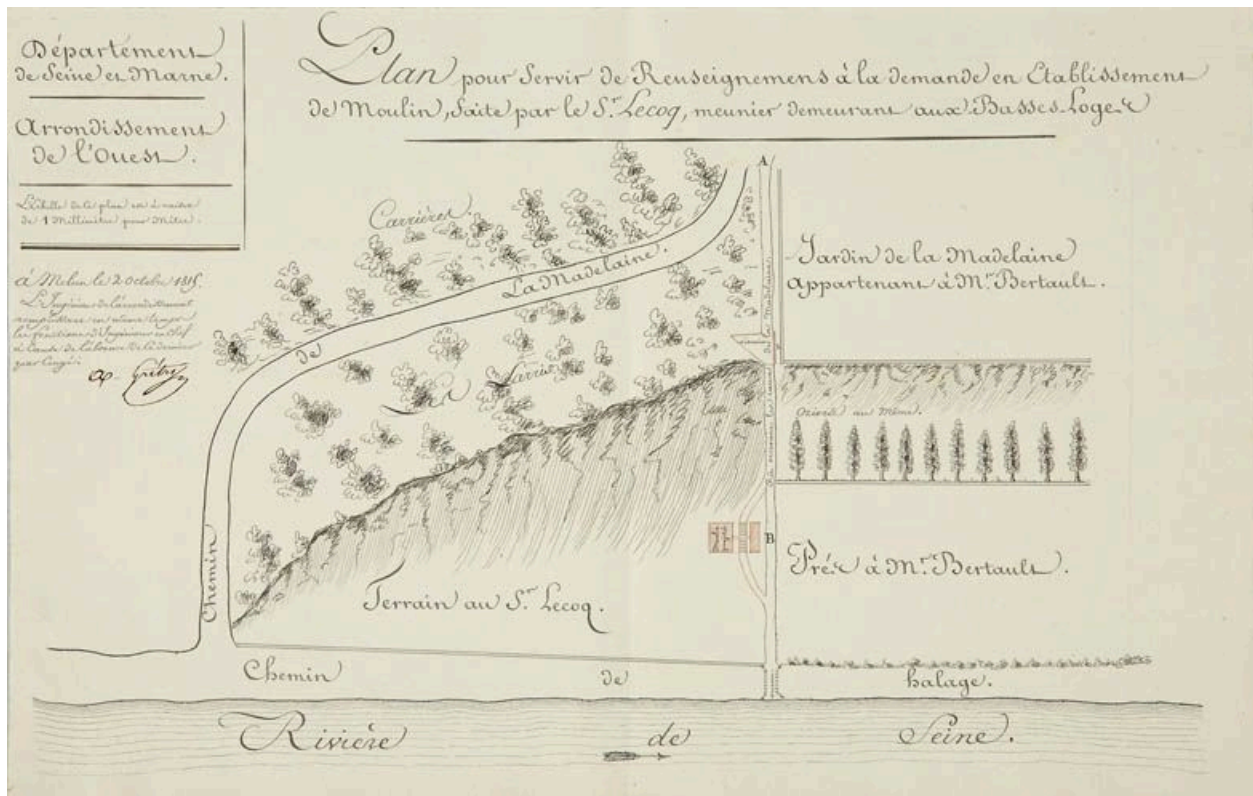 Département
de Seine et Marne.
Arrondissement
de l'Ouest.
L'échelle de le plan est à raison
de 1 Millimètre pour Mètre.
à Melun le 2 octobre 1815.
L'Ingénieur de l'arrondissement
remplissant en même temps
les fonctions d'Ingénieur en Chef
à cause de l'absence de ce dernier
par Congé.
Plan pour Servir de Renseignemens à la demande en Etablissement
de Moulin, faite par le Sr. Lecoq, meunier demeurant aux Basses-Loges
A
Carrières.
Jardin de la Madelaine
appartenant à Mr. Bertault.
Chemin de La Madelaine.
de la Madelaine
Larris
Oseraie au Même.
B
Prés à Mr. Bertault.
Terrain au Sr. Lecoq.
Chemin de halage.
Rivière de Seine.